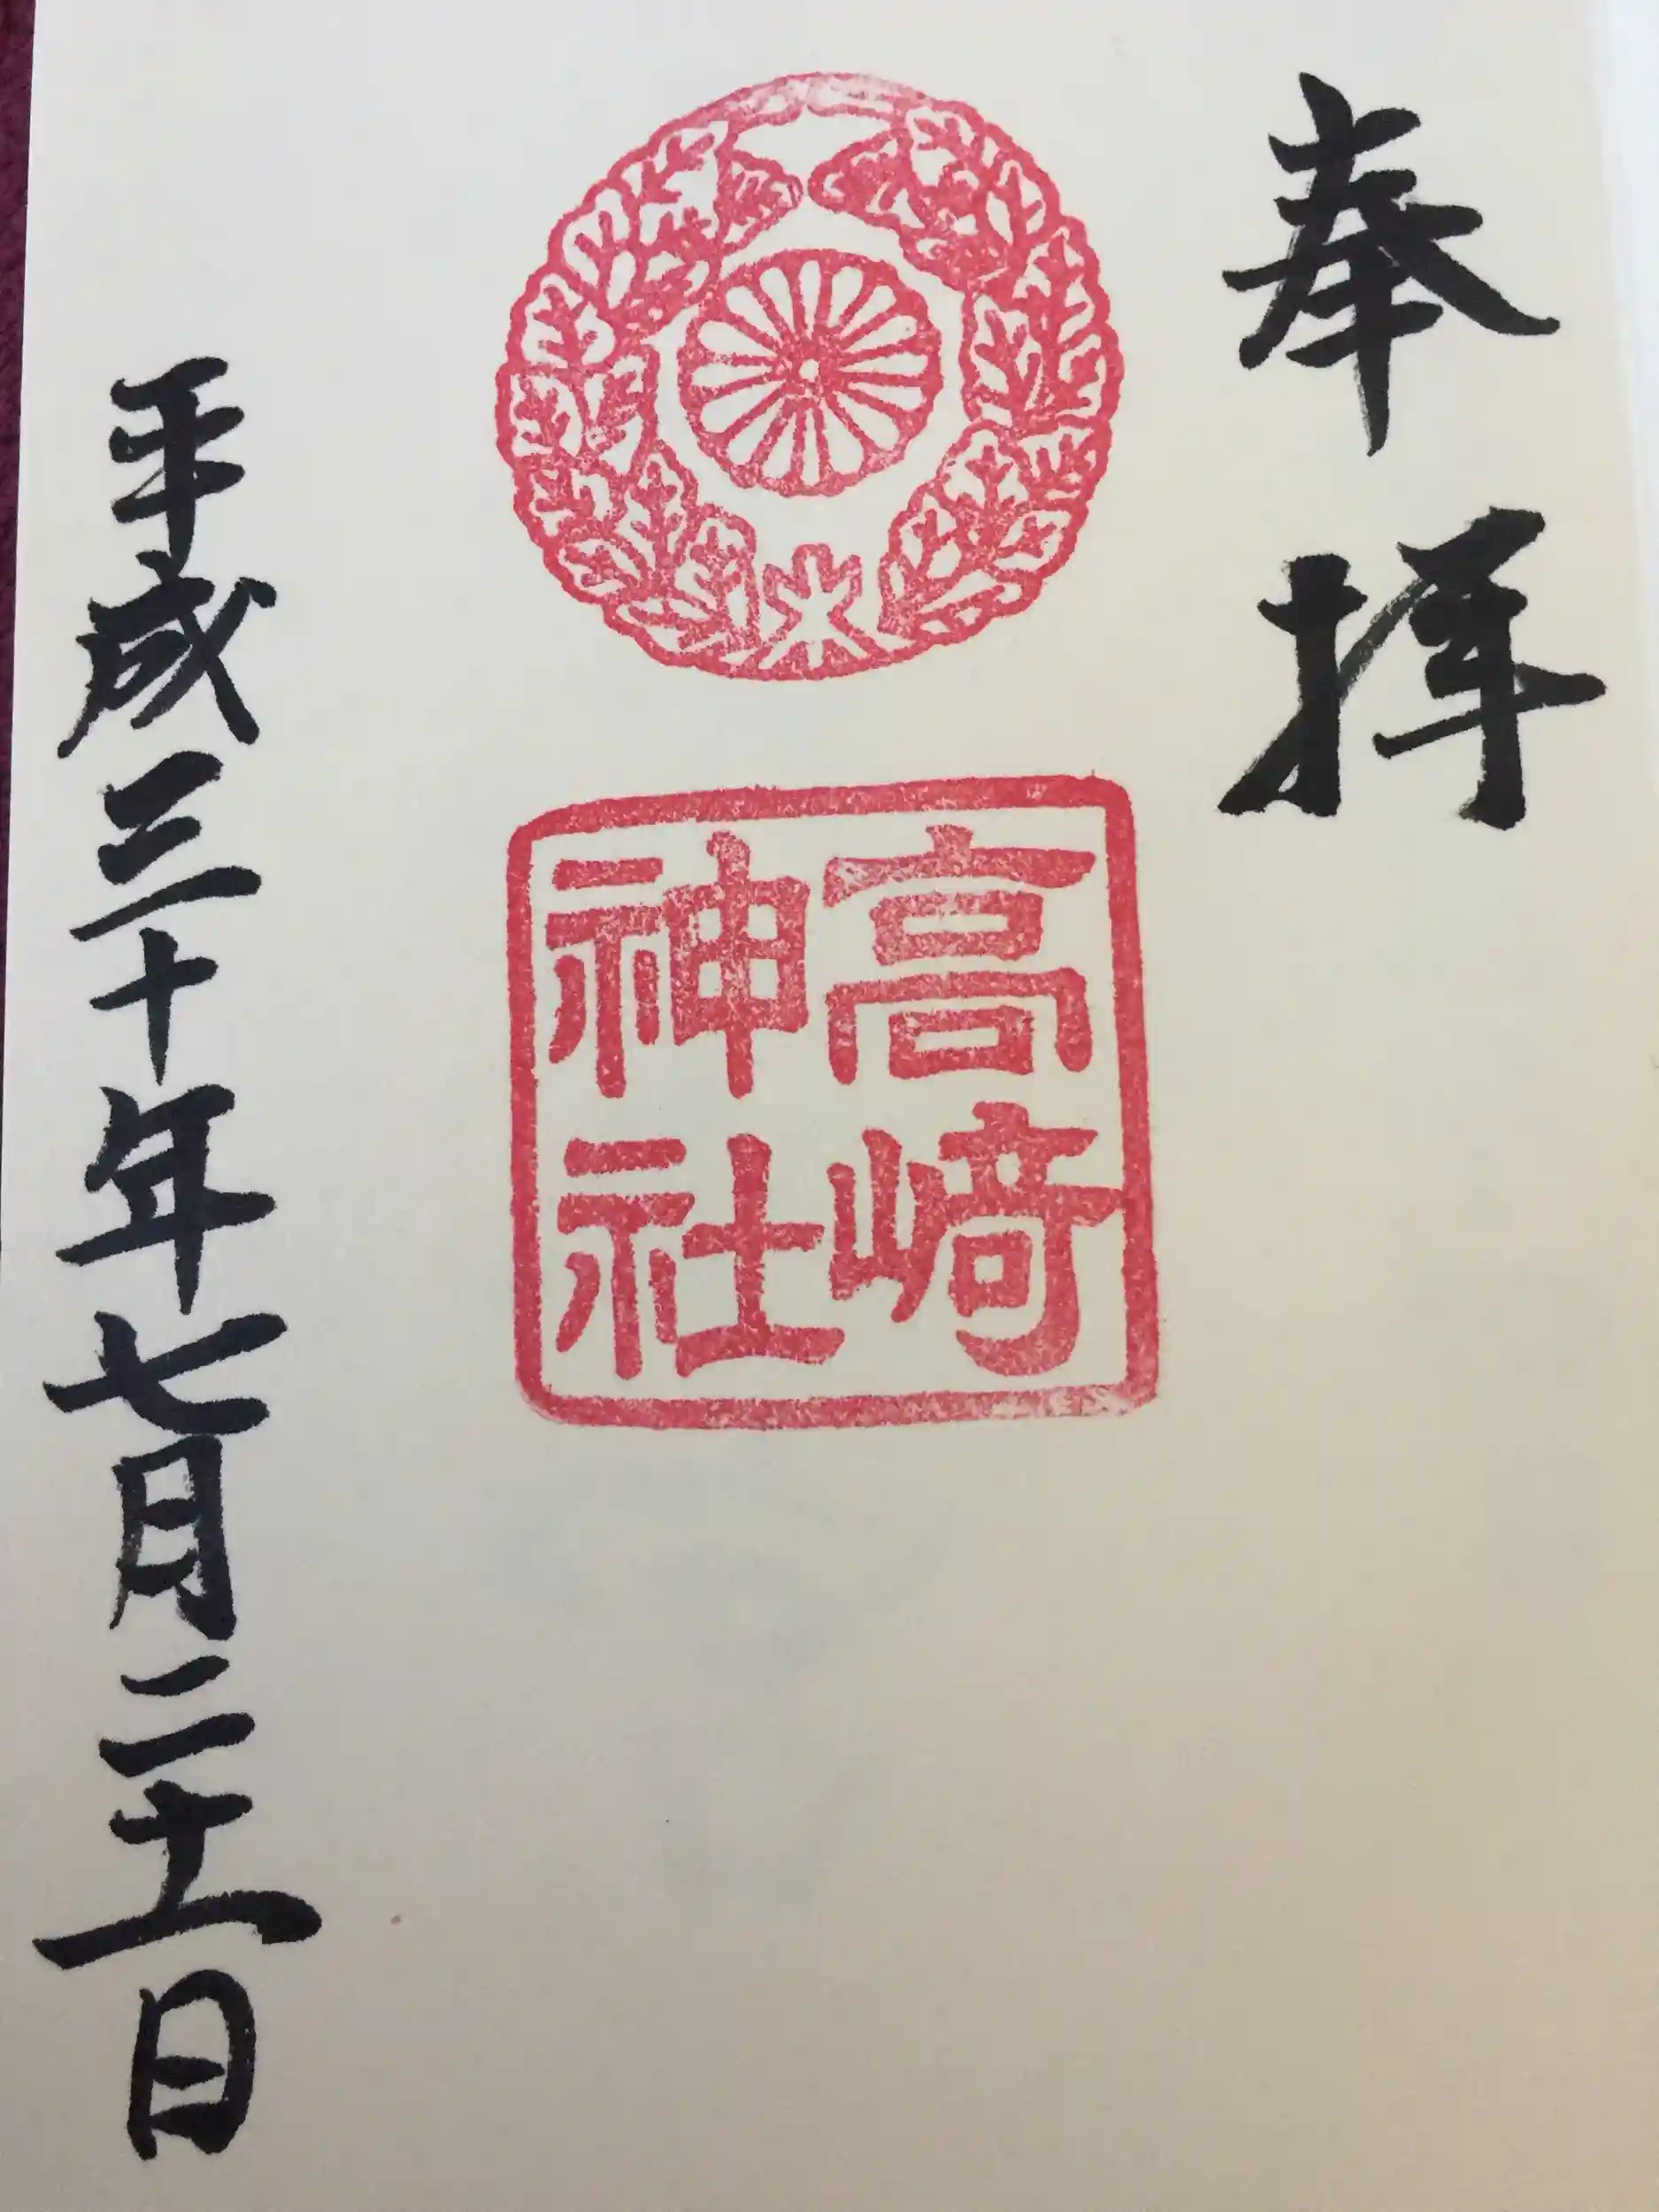 奉拝
高崎
神社
平成三十年七月二十一日